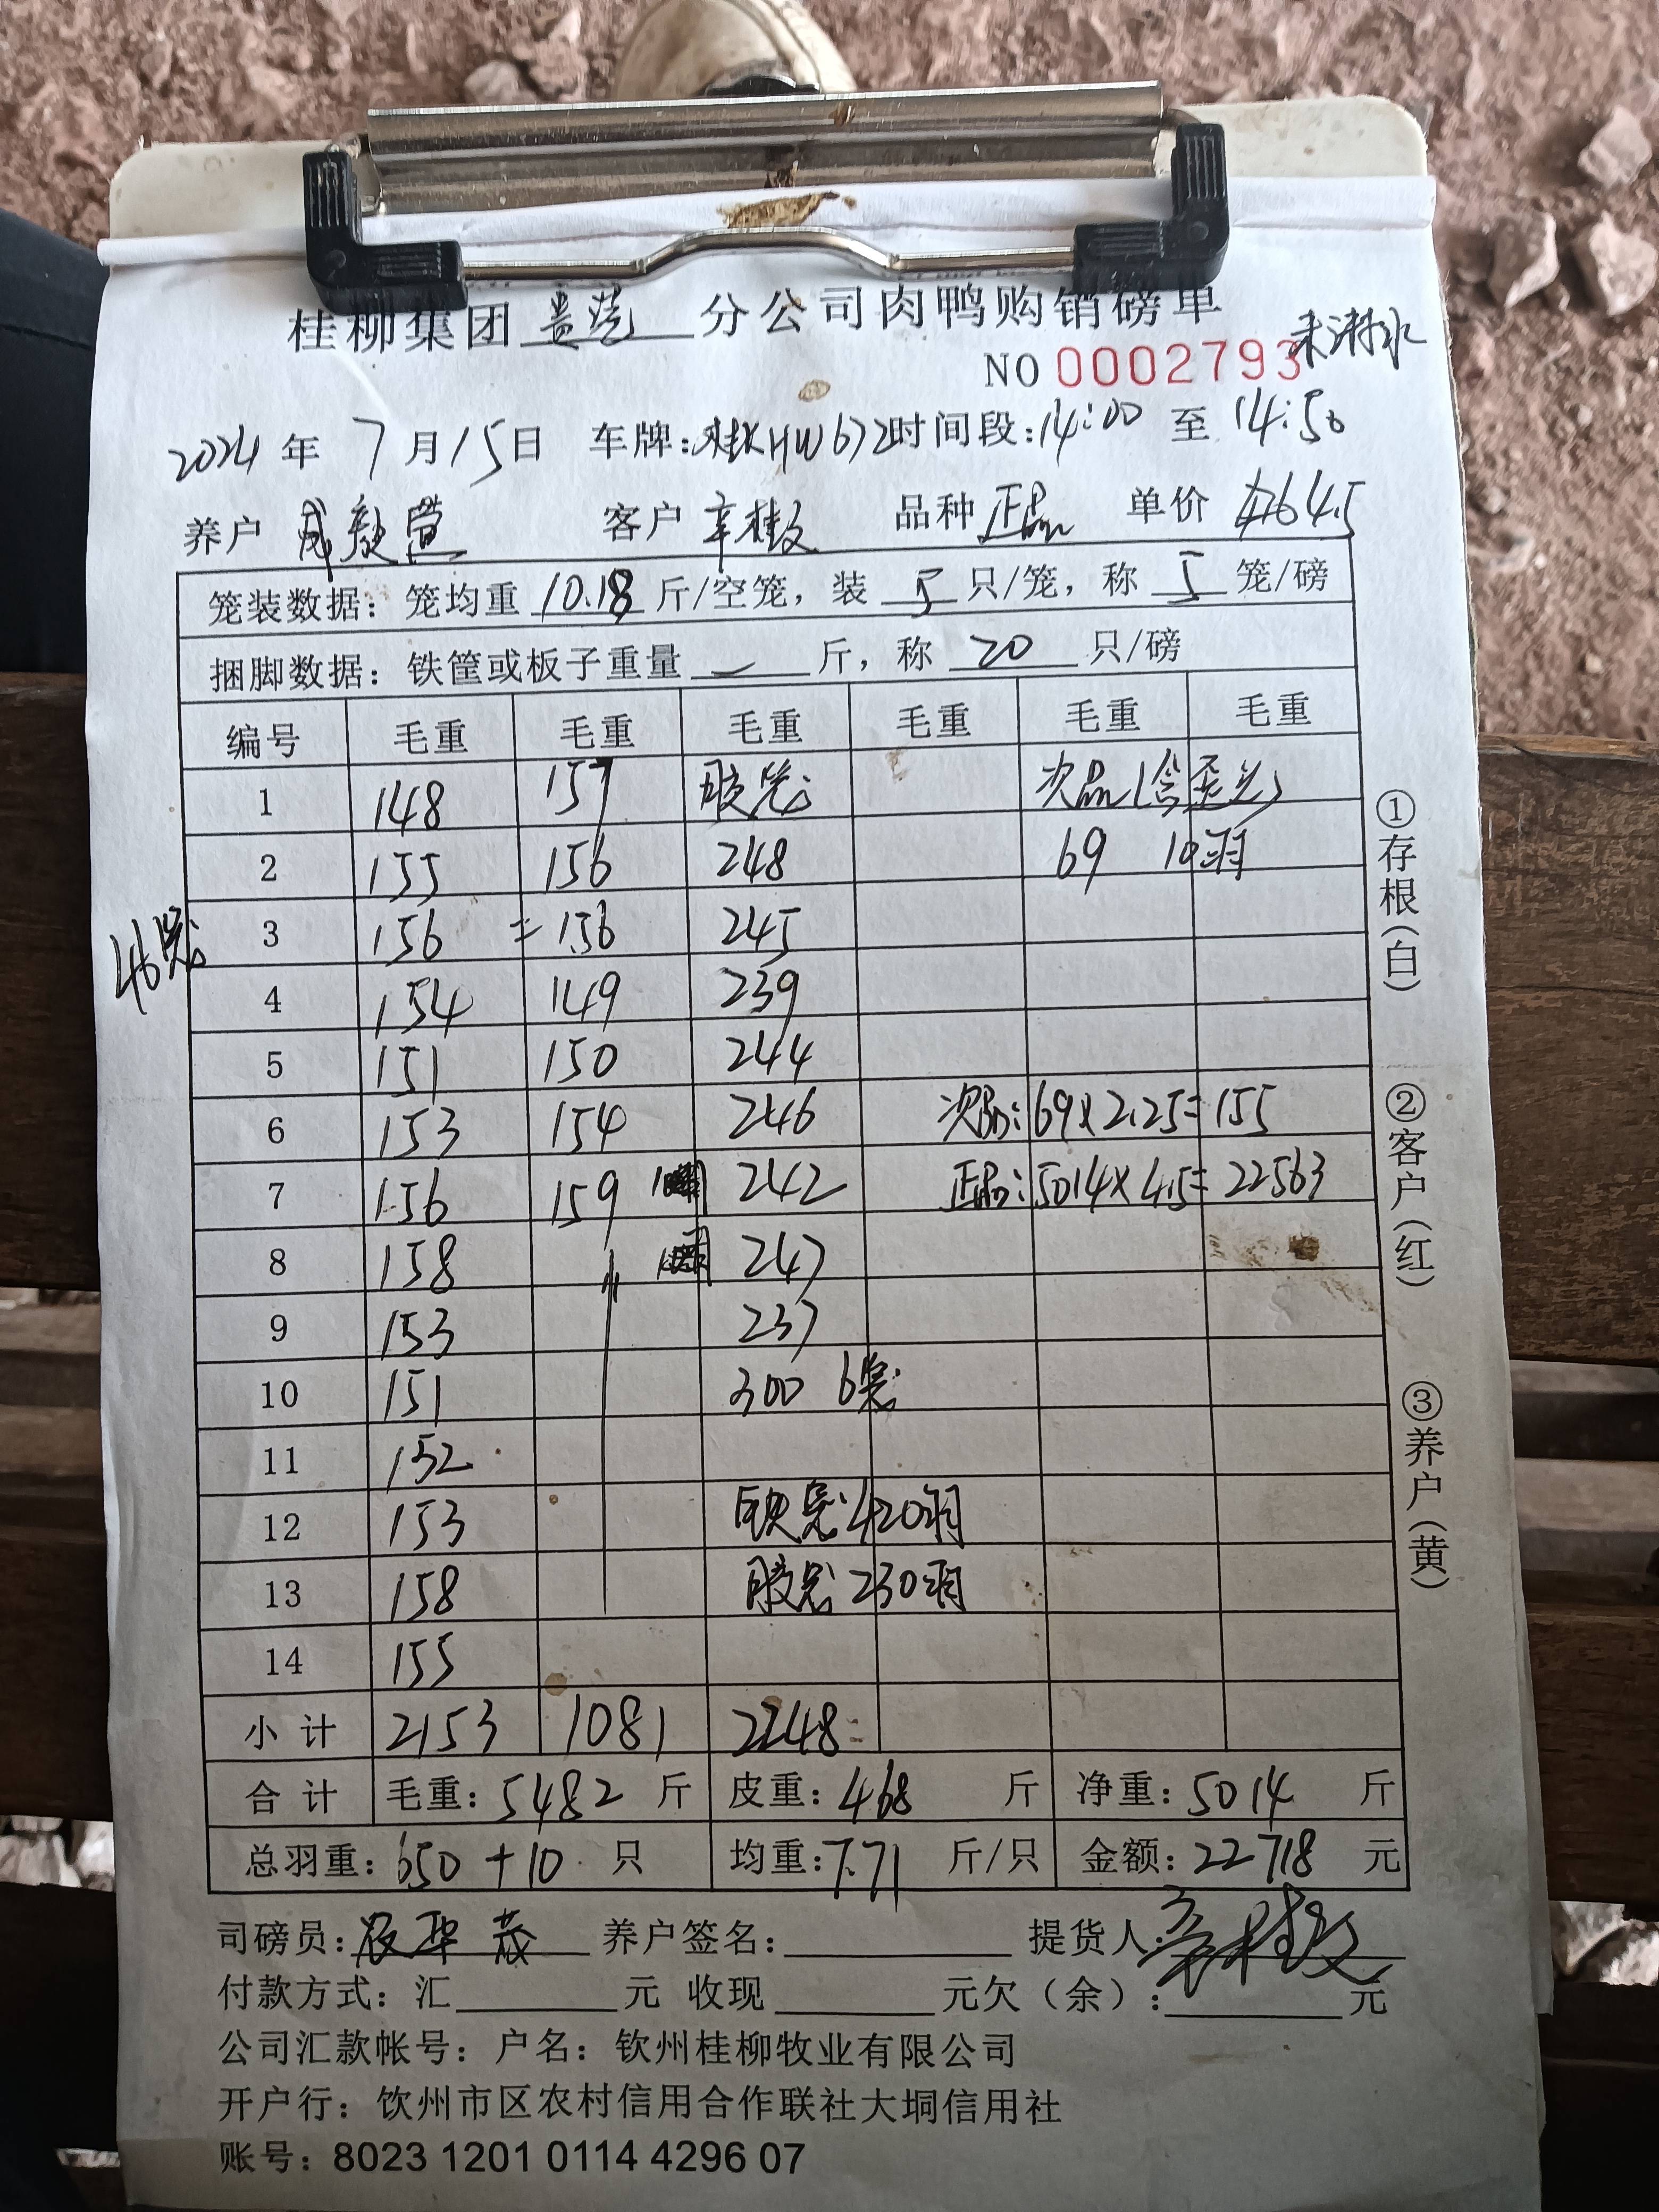 桂柳集团 贵港 分公司肉鸭购销磅单
NO 0002793 未淋水
2024 年 7 月 15 日 车牌: 桂KHW672 时间段: 14:00 至 14:50
养户 客户 辛桂文 品种 正品 单价 4.5
笼装数据: 笼均重 10.18 斤/空笼, 装 5 只/笼, 称 5 笼/磅
捆脚数据: 铁筐或板子重量 — 斤, 称 20 只/磅
编号 毛重 毛重 毛重 毛重 毛重 毛重
1 148 157 胶笼 次品(含歪头)
2 155 156 248 69 10羽
3 156 = 156 245
46笼
4 154 149 239
5 151 150 244
6 153 154 246 次品: 69×2.25=155
7 156 159 242 正品: 5014×4.5=22563
8 158 247
9 153 237
10 151 300 6笼
11 152
12 153 铁笼: 420羽
13 158 胶笼 230羽
14 155
小计 2153 1081 2248
合计 毛重: 5482 斤 皮重: 468 斤 净重: 5014 斤
总羽重: 650 + 10 只 均重: 7.71 斤/只 金额: 22718 元
司磅员: 养户签名: 提货人: 辛桂文
付款方式: 汇 元 收现 元欠(余): 元
公司汇款帐号: 户名: 钦州桂柳牧业有限公司
开户行: 钦州市区农村信用合作联社大垌信用社
账号: 8023 1201 0114 4296 07
①存根(白)
②客户(红)
③养户(黄)